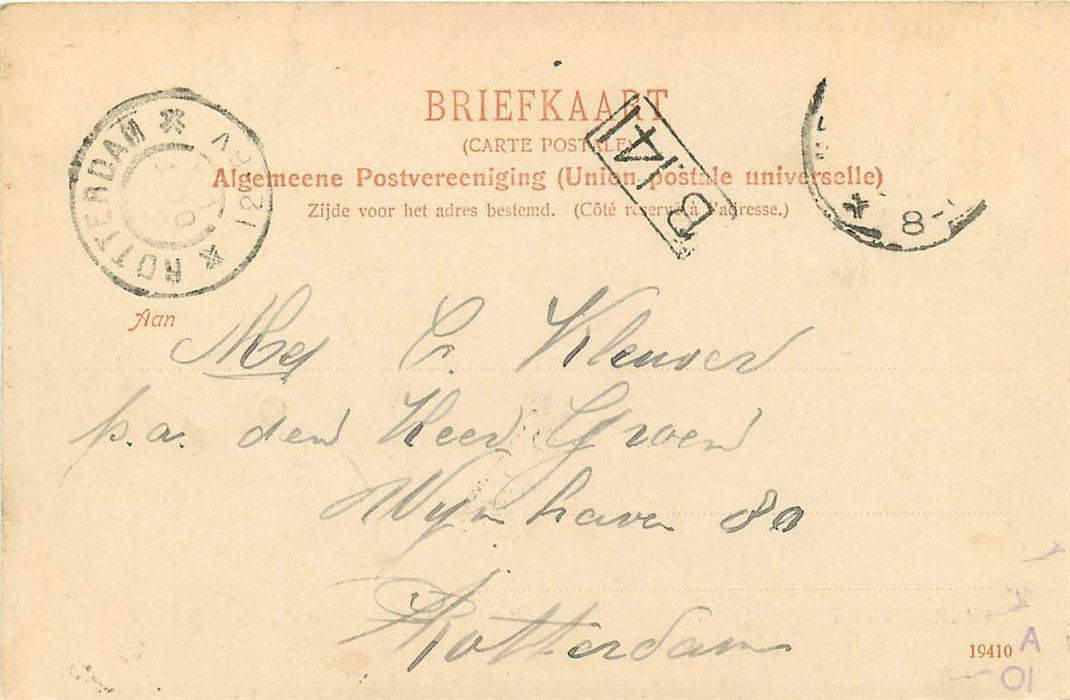 BRIEFKAART
(CARTE POSTALE)
Algemeene Postvereeniging (Union postale universelle)
Zijde voor het adres bestemd. (Côté réservé à l'adresse.)
ROTTERDAM
B 141
8-
Aan
Mej C. Kleuver
p.a. den Heer Groen
Wynhaven 80
Rotterdam
19410
A
10